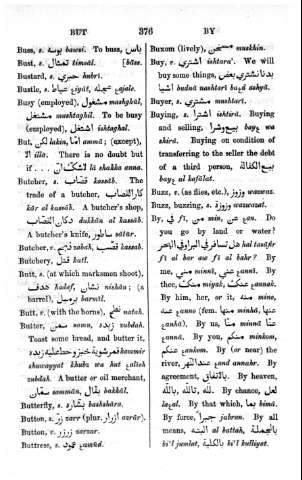 BUT 376 BY
Buss, s. بوسه bawsi. To buss, باس
Bust, s. تمثال timsál. [báss.
Bustard, s. حبري hubri.
Bustle, s. عياط عجله ajale.
Busy (employed), مشغول mashghúl,
مشتغل mushtaghil. To be busy
(employed), اشتغل ishtaghal.
But, لكن lakin, امّا ammá; (except),
الا illa. There is no doubt but
if . . . لا شك ان lá shakka anna.
Butcher, s. قصاب kassáb. The
trade of a butcher, كار القصاب
kár al kassáb. A butcher's shop,
دكان القصاب dukkán al kassáb.
A butcher's knife, ساطور sátúr.
Butcher, v. ذبح قصب kassab.
Butchery, قتل kutl.
Butt, s. (at which marksmen shoot),
هدف hadaf, نشان nishán; (a
barrel), برميل barmíl.
Butt, v. (with the horns), نطح natah.
Butter, سمن samn, زبده zubdah.
Toast some bread, and butter it,
shawayyat khubz wa hut aleih
zubdah. A butter or oil merchant,
سمان sammán, بقال bakkál.
Butterfly, s. بشاره bashshára.
Button, s. زر zarr (plur. ازرار azrár).
Button, v. زرر zarrar.
Buttress, s. عمود amúd.
Buxom (lively),
Buy, v. اشتري ishtara'. We will
buy some things, بدنا نشتري بعض
اشيا badná nashtari bad ashyá.
Buyer, s. مشتري mushtari.
Buying, s. اشتري ishtirá. Buying
and selling, بيع وشرا bay wa
shira. Buying on condition of
transferring to the seller the debt
of a third person, بيع الكفالة
bay al kafálat.
Buzz, v. (as flies, etc.), وزوز wazwaz.
Buzz, buzzing, s. وزوزة wazwazat.
By, في fí, من min, عن an. Do
you go by land or water?
هل تسافر في البر او في البحر hal tasáfir
fí al bar aw fí al bahr? By
me, مني minní, عني anní. By
thee, منك minak, عنك annak.
By him, her, or it, منه minu,
عنه anno (fem. منها minhá, عنها
anhá). By us, منا minná, عنا
anná. By you, منكم minkom,
عنكم ankom. By (or near) the
river, عند النهر and annahr. By
agreement, بالاتفاق bilittifák. By
heaven, بالله, تالله, والله. By chance, لعل
laal. By that which, بما bimá.
By force, جبرا jabran. By all
means, البته al battah, بالجملة
bi'l jumlat, بالكلية bi'l kulliyat.